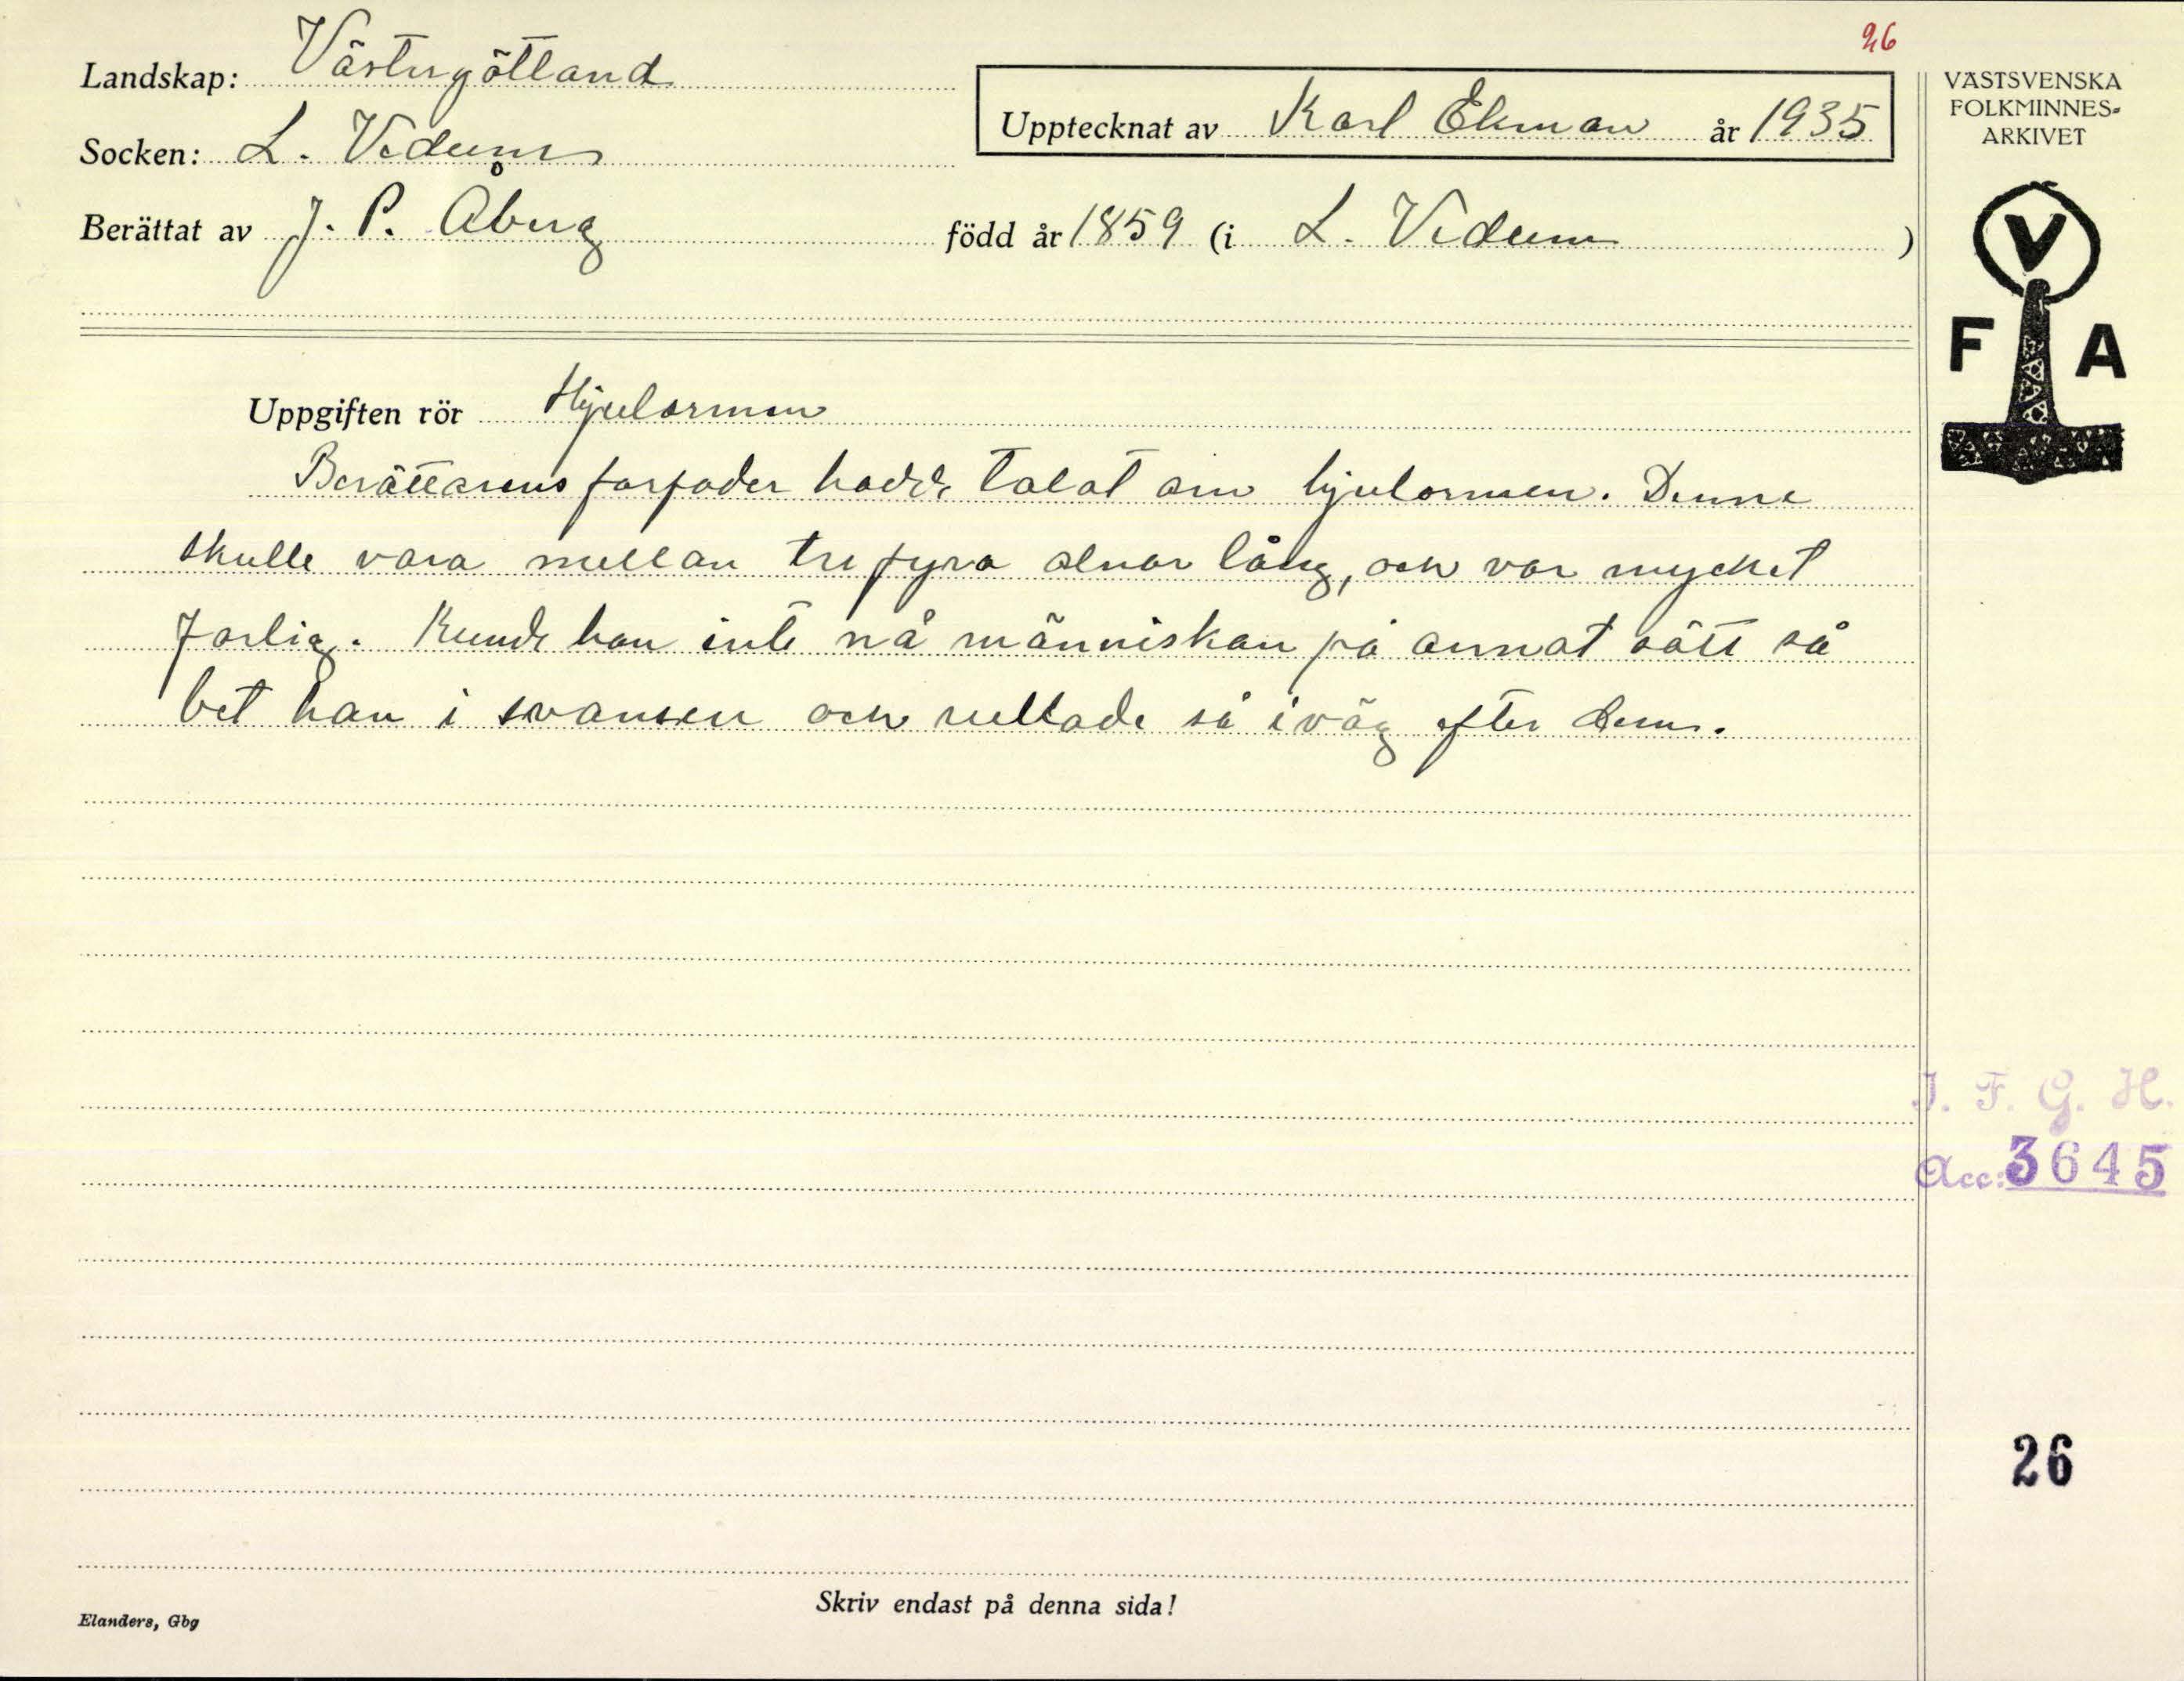 26
Landskap: Västergötland
Upptecknat av Karl Ekman år 1935
Socken: L. Vedum
Berättat av J. P. Åberg född år 1859 (i L. Vedum )
VÄSTSVENSKA
FOLKMINNES-
ARKIVET
V
F A
Uppgiften rör Hjulormen
Berättarens farfader hade talat om hjulormen. Denne
skulle vara mellan tre fyra alnar lång, och var mycket
farlig. Kunde han inte nå människan på annat sätt så
bet han i svansen och rullade så iväg efter dem.
I. F. G. H.
Acc: 3645
26
Skriv endast på denna sida!
Elanders, Gbg